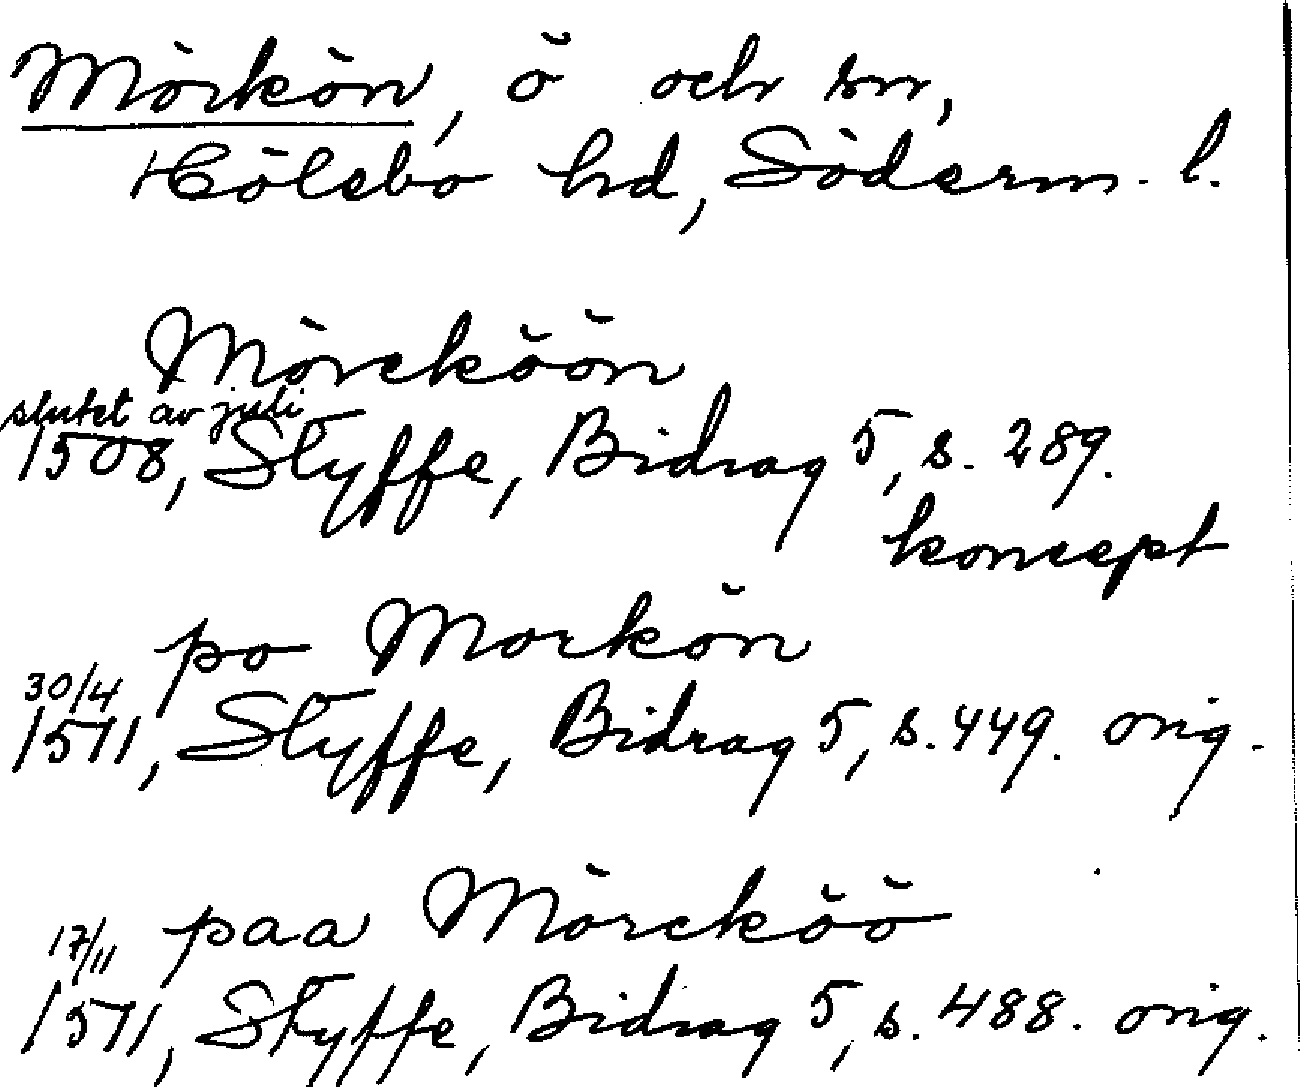 Mörkön, ö och sn,
Hölebo hd, Söderm. l.
Mörcköön
slutet av juli
1508, Styffe, Bidrag 5, s. 289.
koncept
po Morkön
30/4
1511, Styffe, Bidrag 5, s. 449. orig.
paa Mörcköö
17/11
1511, Styffe, Bidrag 5, s. 488. orig.